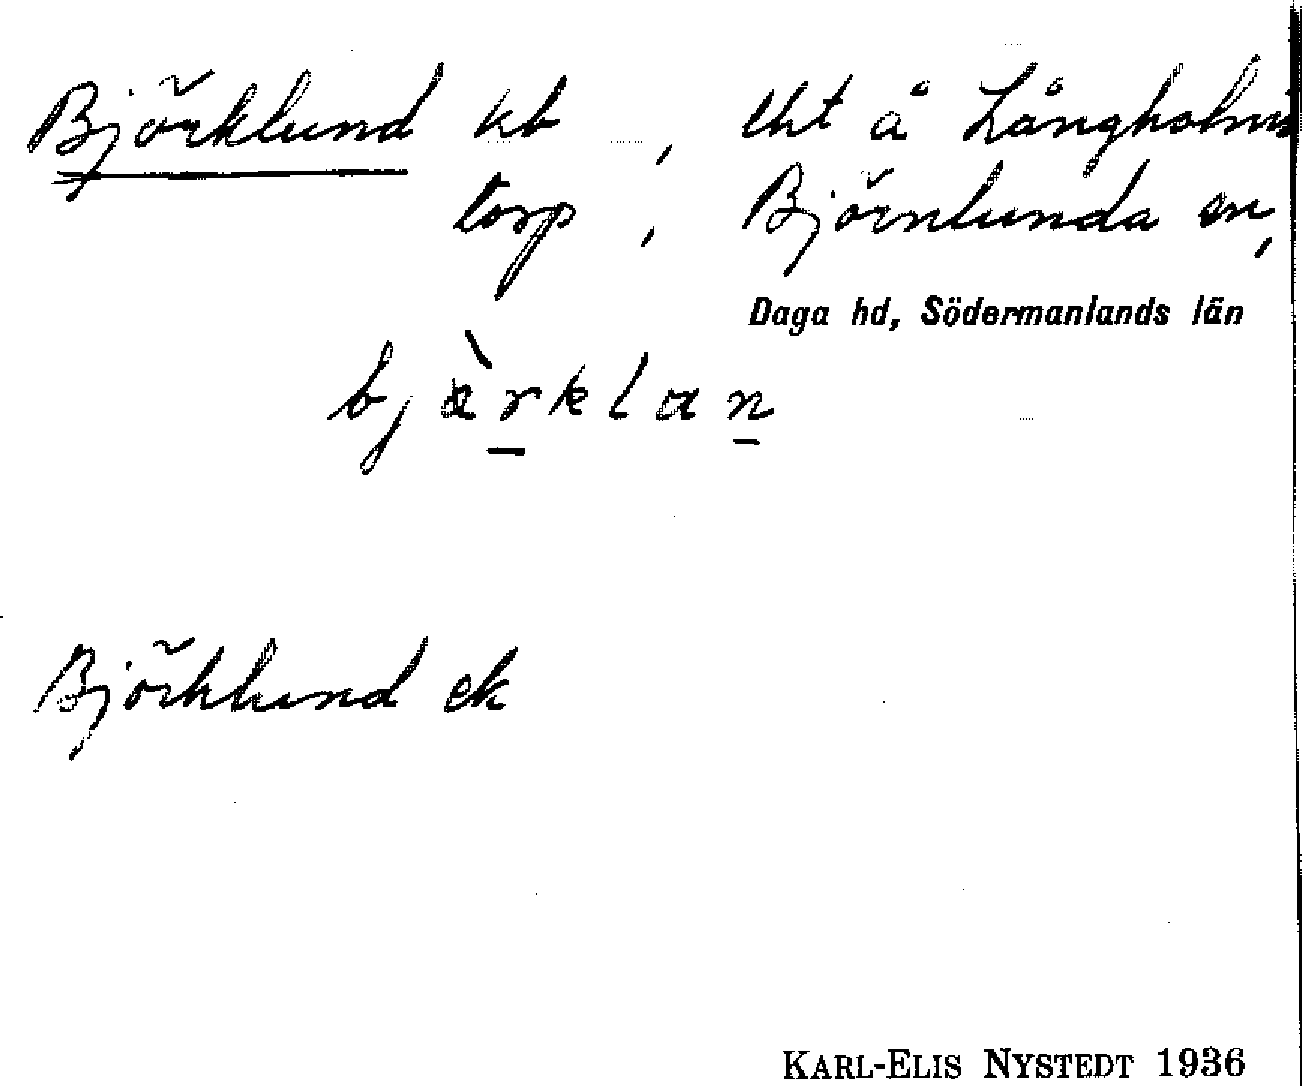 Björklund kb , tht å Långholms
torp , Björnlunda sn,
Daga hd, Södermanlands län
bjæ̀rklan
Björklund ek
KARL-ELIS NYSTEDT 1936